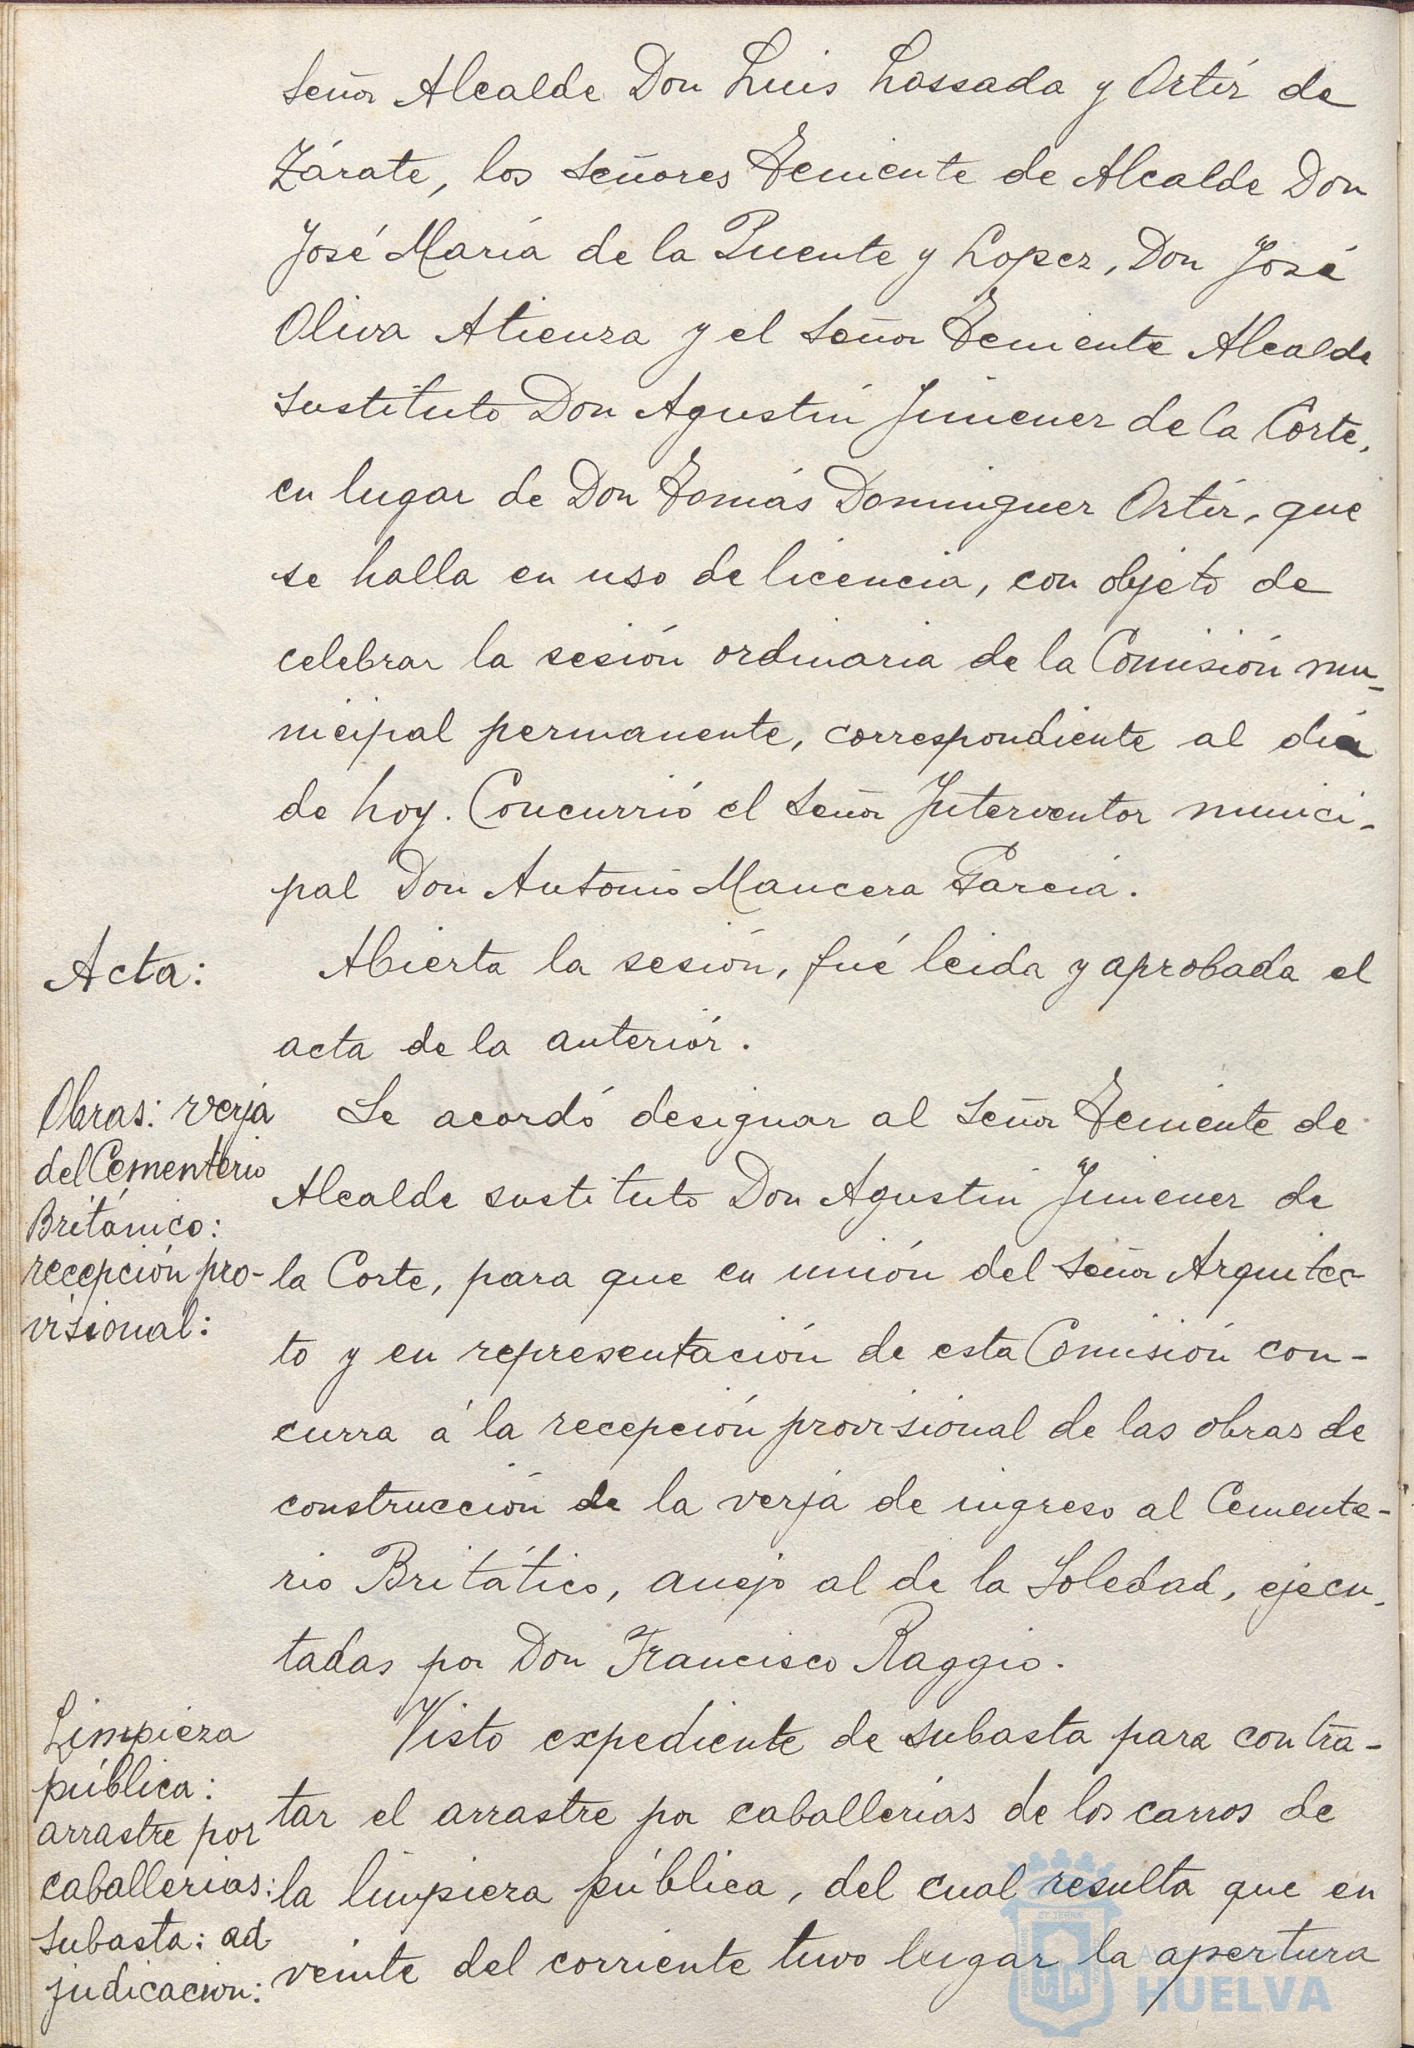 Señor Alcalde Don Luis Lossada y Ortíz de
Zárate, los Señores Teniente de Alcalde Don
José María de la Puente y Lopez, Don José
Oliva Atienza y el Señor Teniente Alcalde
sustituto Don Agustín Jimenez de la Corte,
en lugar de Don Tomás Dominguez Ortíz, que
se halla en uso de licencia, con objeto de
celebrar la sesión ordinaria de la Comisión mu-
nicipal permanente, correspondiente al día
de hoy. Concurrió el Señor Interventor munici-
pal Don Antonio Mancera García.
Acta:
Abierta la sesión, fué leida y aprobada el
acta de la anteriór.
Obras: verja
del Cementerio
Británico:
recepción pro-
visional:
Se acordó designar al Señor Teniente de
Alcalde sustituto Don Agustin Jimenez de
la Corte, para que en unión del Señor Arquitec
to y en representación de esta Comisión con-
curra á la recepción provisional de las obras de
construcción de la verja de ingreso al Cemente-
rio Britático, anejo al de la Soledad, ejecu-
tadas por Don Francisco Raggio.
Limpieza
pública:
arrastre por
caballerias:
subasta: ad
judicacion:
Visto expediente de subasta para contra-
tar el arrastre por caballerías de los carros de
la limpieza pública, del cual resulta que en
veinte del corriente tuvo lugar la apertura
HUELVA